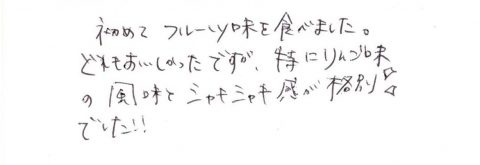 初めて フルーツ味を食べました。
どれもおいしかったですが、特にりんご味
の風味とシャキシャキ感が格別
でした!!